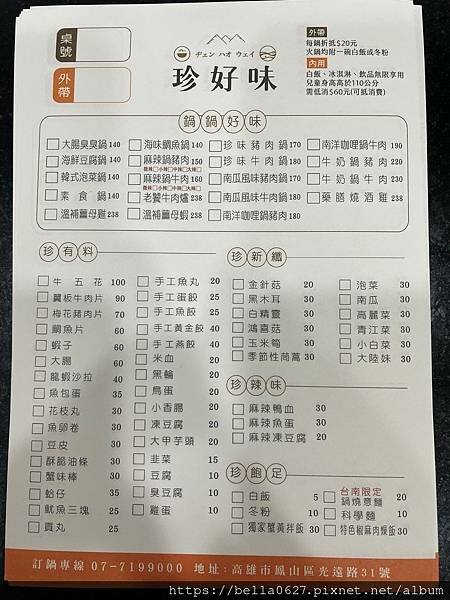 桌號
外帶
ヂェン ハオ ウェイ
珍好味
外帶
每鍋折抵$20元
火鍋均附一碗白飯或冬粉
內用
白飯、冰淇淋、飲品無限享用
兒童身高高於110公分
需低消$60元(可抵消費)
鍋鍋好味
大腸臭臭鍋 140
海鮮豆腐鍋 140
韓式泡菜鍋 140
素食鍋 140
溫補薑母鴨 238
海味鯛魚鍋 140
麻辣鍋豬肉 150
微辣 小辣 中辣 大辣
麻辣鍋牛肉 160
微辣 小辣 中辣 大辣
老饕牛肉爐 238
溫補薑母蝦 238
珍味豬肉鍋 170
珍味牛肉鍋 180
南瓜風味豬肉鍋 170
南瓜風味牛肉鍋 180
南洋咖哩鍋豬肉 180
南洋咖哩鍋牛肉 190
牛奶鍋豬肉 220
牛奶鍋牛肉 230
藥膳燒酒雞 238
珍有料
牛五花 100
翼板牛肉片 90
梅花豬肉片 70
鯛魚片 60
蝦子 60
大腸 60
龍蝦沙拉 40
魚包蛋 35
花枝丸 30
魚卵卷 30
豆皮 30
酥脆油條 30
蟹味棒 30
蛤仔 35
魷魚三塊 25
貢丸 25
手工魚丸 20
手工蛋餃 25
手工魚餃 25
手工黃金餃 40
手工燕餃 40
米血 20
黑輪 20
鳥蛋 20
小香腸 20
凍豆腐 20
大甲芋頭 20
韭菜 15
豆腐 10
臭豆腐 10
雞蛋 10
珍新纖
金針菇 20
黑木耳 30
白精靈 30
鴻喜菇 30
玉米筍 30
季節性茼蒿 30
泡菜 30
南瓜 30
高麗菜 30
青江菜 30
小白菜 30
大陸妹 30
珍辣味
麻辣鴨血 30
麻辣魚蛋 30
麻辣凍豆腐 20
珍飽足
白飯 5
冬粉 10
獨家蟹黃拌飯 30
台南限定
鍋燒意麵 20
科學麵 10
特色椒麻肉燥飯 30
訂鍋專線 07-7199000 地址:高雄市鳳山區光遠路31號
https://bella0627.pixnet.net/album